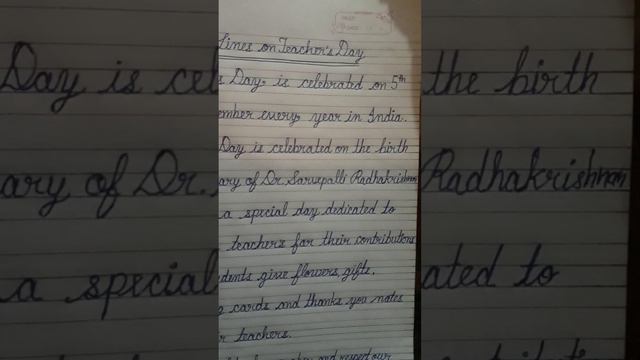 Lines on Teacher's Day
s Day is celebrated on 5th
ember every year in India.
Day is celebrated on the birth
ary of Dr. Sarvepalli Radhakrishnan
a special day dedicated to
teachers for their contributions
dents give flowers, gifts,
cards and thanks you notes
r teachers.
and respect our